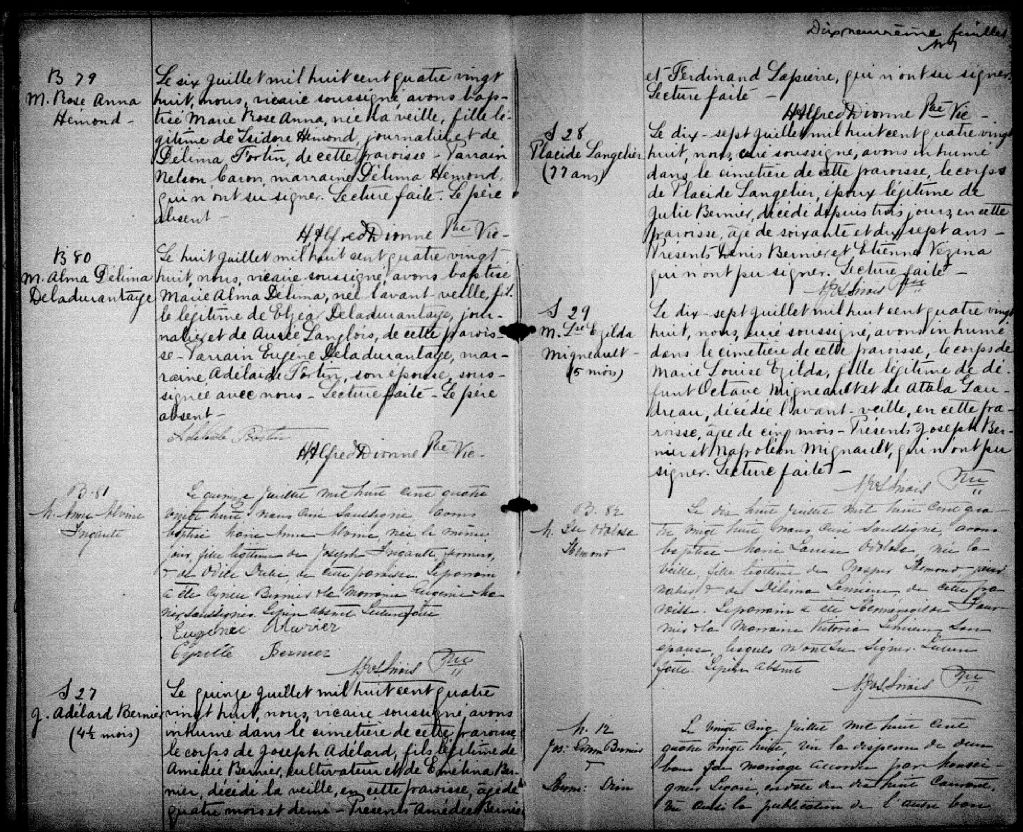 B 79
M. Rose Anna
Hemond -
Le six Juillet mil huit cent quatre vingt
huit, nous, vicaire soussigné, avons bap-
tisé Marie Rose Anna, née la veille, fille lé-
gitime de Isidore Hémond, journalier et de
Délima Fortin, de cette paroisse - Parrain
Nelson Caron, marraine Délima Hemond,
qui n'ont su signer. Lecture faite. Le père
absent -
H Alfred Dionne Ptre Vic -
B 80
M. Alma Délima
Deladurantaye
Le huit Juillet mil huit cent quatre vingt
huit, nous, vicaire soussigné, avons baptisé
Marie Alma Délima, née l'avant-veille, fil-
le légitime de Elzear Deladurantaye, jour-
nalier et de Aurée Langlois, de cette parois-
se - Parrain Eugène Deladurantaye, mar-
raine, Adélaide Fortin, son épouse, sous-
signée avec nous - Lecture faite - Le père
absent -
H Alfred Dionne Ptre Vic -
B. 81
M. Anne Alvine
Le quinze Juillet mil huit cent quatre
vingt huit, nous Curé Soussigné avons
baptisé Marie Anne Alvine, née le même
jour, fille légitime de Joseph
de cette paroisse. Le parrain
a été Bernier & la marraine Eugénie
soussignés. Le père absent Lecture faite
Bernier
S 27
J. Adélard Bernier
(4½ mois)
Le quinze Juillet mil huit cent quatre
vingt huit, nous, vicaire soussigné, avons
inhumé dans le cimetière de cette paroisse
le corps de Joseph Adélard, fils légitime de
Amédée Bernier, cultivateur et de Emélina Ber-
nier, décédé la veille, en cette paroisse, âgé de
quatre mois et demi - Présents Amédée Bernier
Dixneuvième feuillet
et Ferdinand Lapierre, qui n'ont su signer.
Lecture faite -
H Alfred Dionne Ptre Vic -
S 28
Placide Langelier
(77 ans)
Le dix-sept Juillet mil huit cent quatre vingt
huit, nous, curé soussigné, avons inhumé
dans le cimetière de cette paroisse, le corps
de Placide Langelier, époux légitime de
Julie Bernier, décédé depuis trois jours, en cette
paroisse, âgé de soixante et dix sept ans -
Présents Denis Bernier et Etienne Vézina
qui n'ont pu signer. Lecture faite -
S 29
M. Lse Exilda
Migneault -
(5 mois)
Le dix-sept Juillet mil huit cent quatre vingt
huit, nous, curé soussigné, avons inhumé
dans le cimetière de cette paroisse, le corps de
Marie Louise Exilda, fille légitime de dé-
funt Octave Migneault et de Attala Gau-
dreau, décédée l'avant-veille, en cette pa-
roisse, âgée de cinq mois - Présents Joseph Ber-
nier et Napoléon Mignault, qui n'ont pu
signer. Lecture faite -
B. 82
M. Lse
Hemond
Le dix huit Juillet mil huit cent qua-
tre vingt huit nous Curé Soussigné, avons
baptisé Marie Louise née la
veille, fille légitime de Prosper Hemond jour-
nalier & de Délima de cette pa-
roisse. Le parrain a été
& la Marraine Victoria son
épouse, lesquels n'ont su signer. Lecture
faite. Le père absent
M. 12
Jos: Bernier
&
Le vingt cinq Juillet mil huit cent
quatre vingt huit, vu la dispense de deux
bans de mariage accordée par Monsei-
gneur en date du dix huit Courant,
vu aussi la publication de l'autre ban